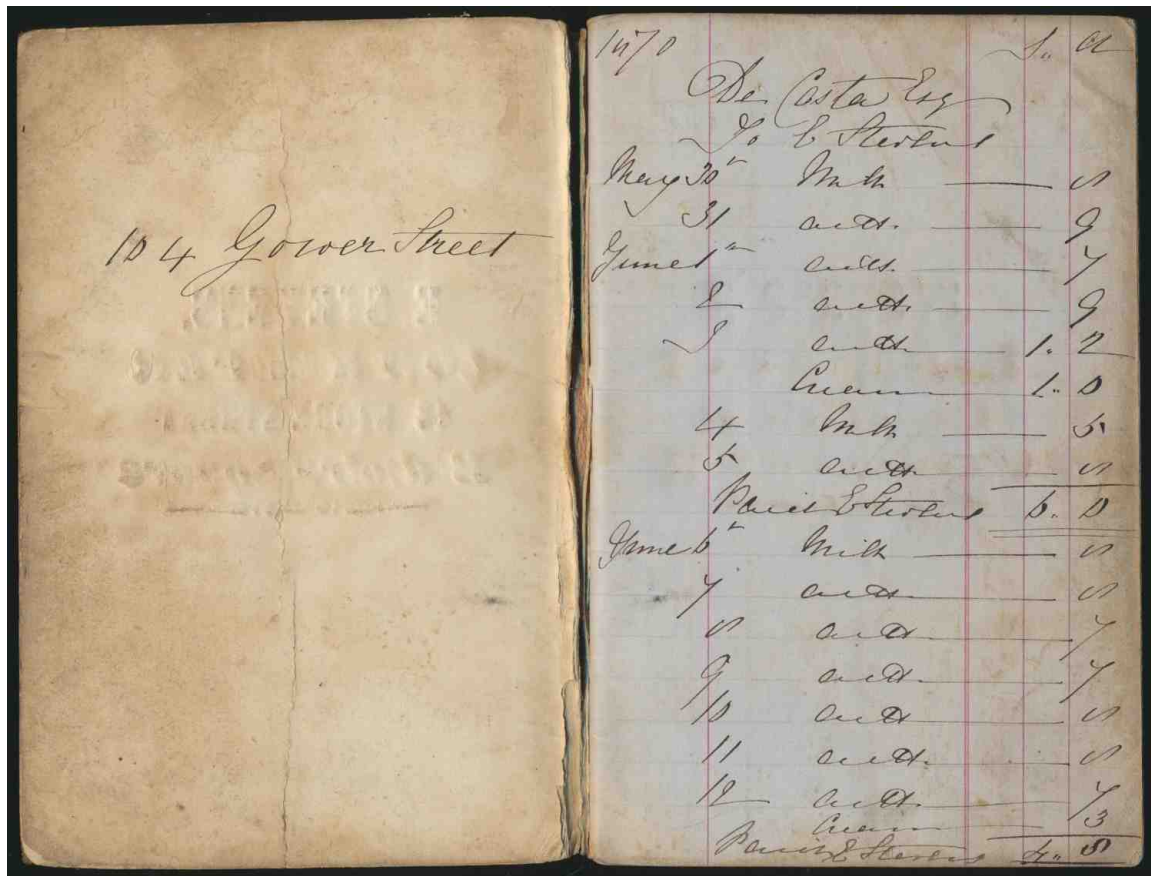 104 Gower Street
1870 S.. d
De Casta Esq
To E Stevens
May 30th Milk 8
31 ditto 9
June 1st ditto 7
2 ditto 9
3 ditto 1.. 2
Cream 1.. 0
4 Milk 5
5 ditto 8
Paid E Stevens 6.. 0
June 6th Milk 8
7 ditto 8
8 ditto 7
9 ditto 7
10 ditto 8
11 ditto 8
12 ditto 7
Cream 3
Paid E Stevens 4.. 8